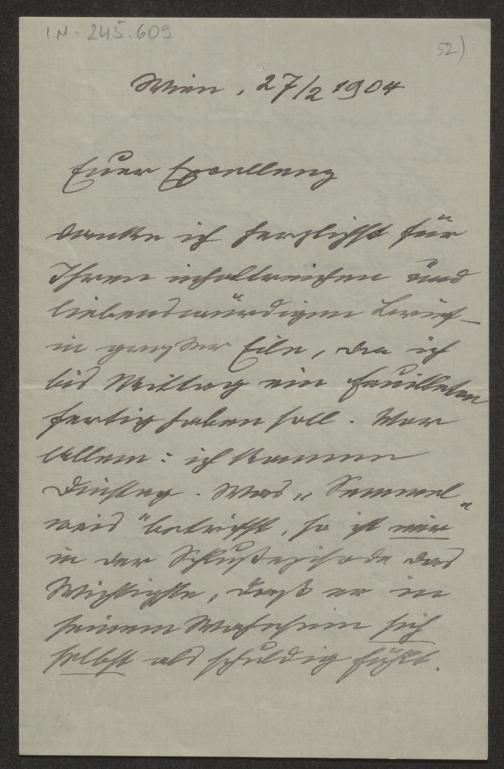 I.N. 245.609
52)
Wien, 27/2 1904
Euer Excellenz
danke ich herzlichst für
Ihren inhaltreichen und
liebenswürdigen Brief –
in grosser Eile, da ich
bis Mittag ein Feuilleton
fertig haben soll. Vor
Allem: ich komme
Dinstag. Was „Semmel-
weis" betrifft, so ist mir
in der Schlußepisode das
Wichtigste, daß er in
seinem Wahnsinn sich
selbst als schuldig fühlt.